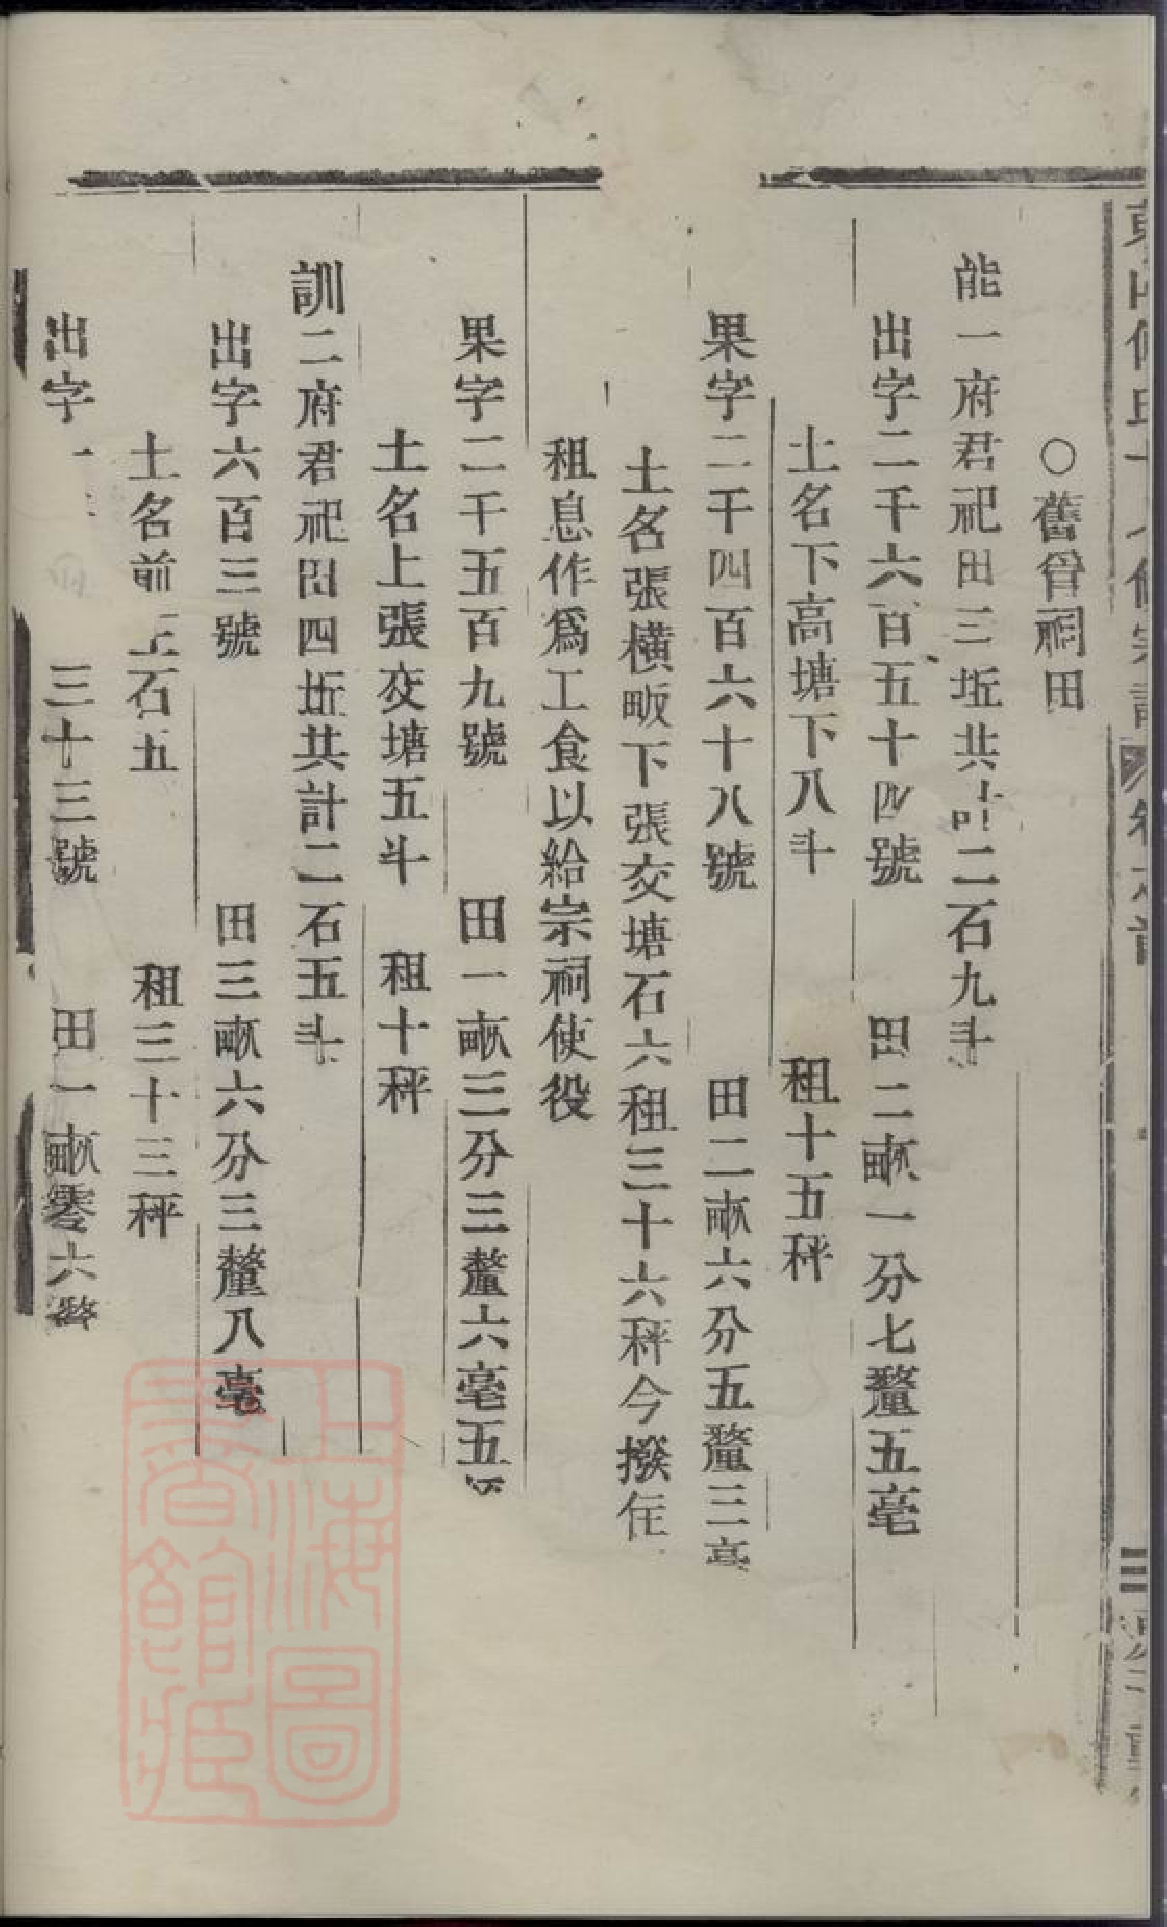 ○舊曾祠田
能一府君祀田三坵共計二石九斗
出字二千六百五十四號 田二畝一分七釐五毫
土名下高塘下八斗 租十五秤
果字二千四百六十八號 田二畝六分五釐三毫
土名張橫畈下張交塘石六租三十六秤今撥在
租息作爲工食以給宗祠使役
果字二千五百九號 田一畝三分三釐六毫五
土名上張交塘五斗 租十秤
訓二府君祀田四坵共計二石五斗
出字六百三號 田三畝六分三釐八毫
土名前 石五 租三十三秤
出字 三十三號 田一畝零六釐
上海圖書館藏